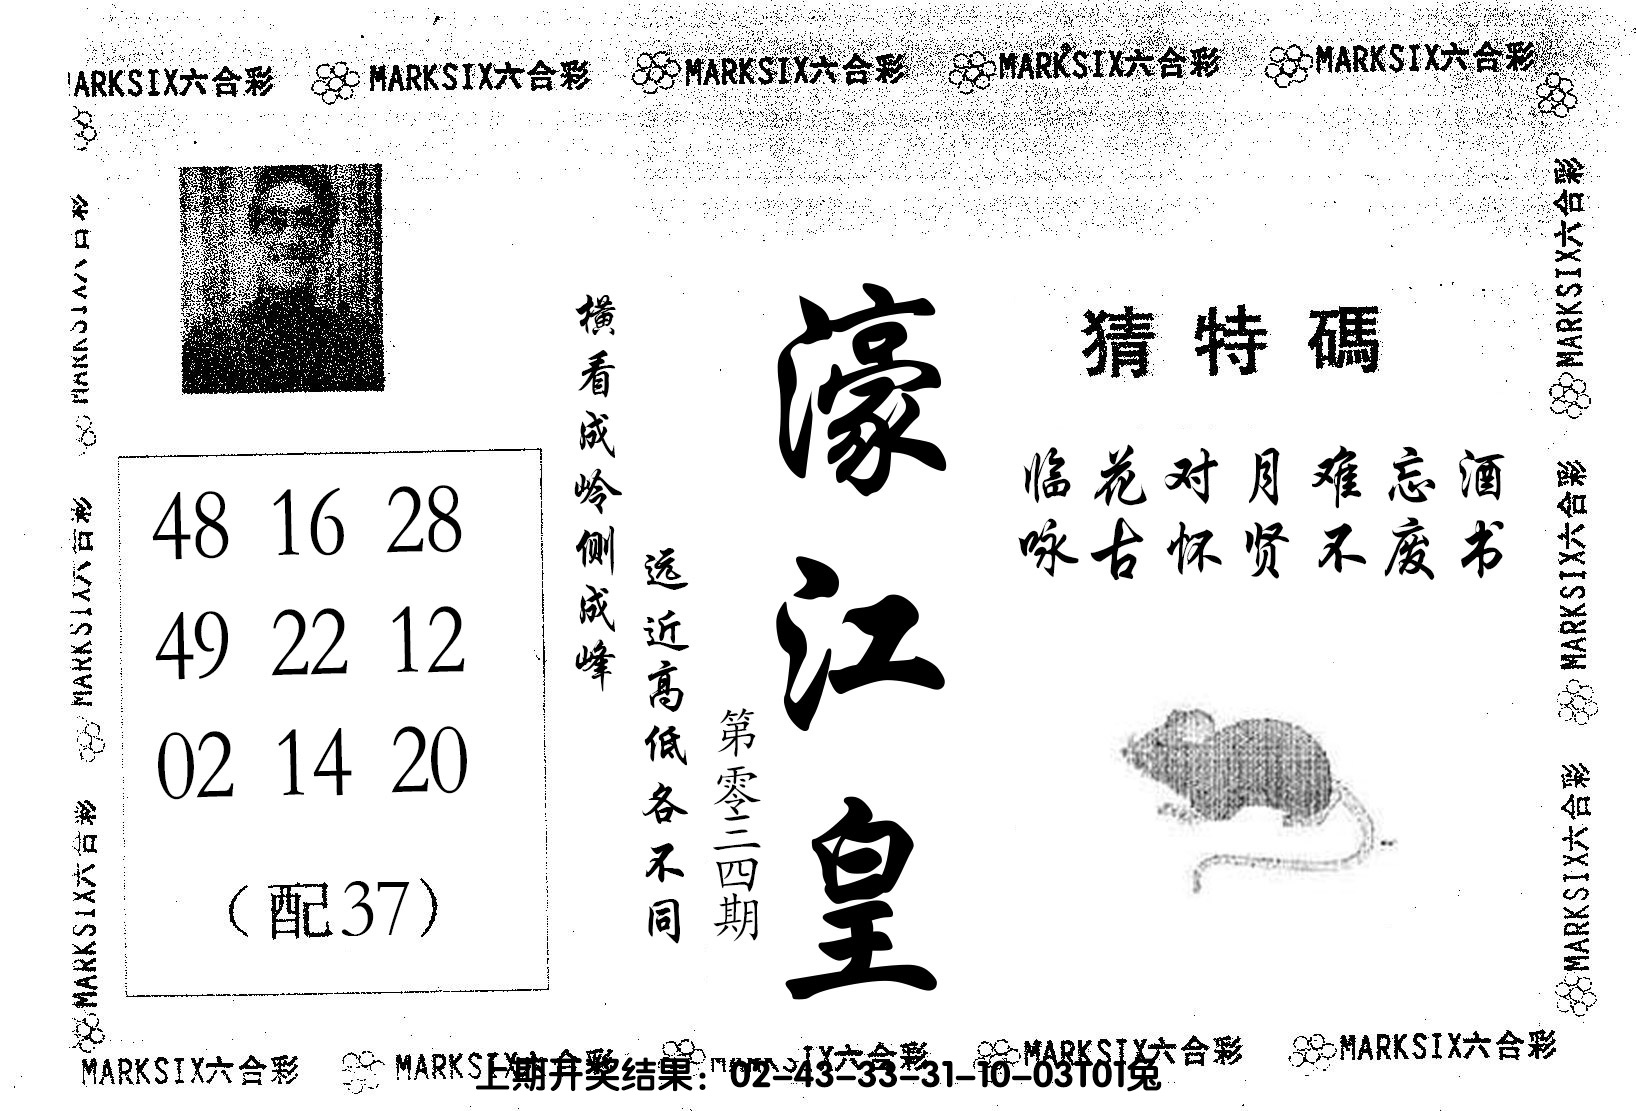 MARKSIX六合彩 MARKSIX六合彩 MARKSIX六合彩 MARKSIX六合彩
猜特碼
临花对月难忘酒
咏古怀贤不废书
濠江皇
第零三四期
横看成岭侧成峰
远近高低各不同
48 16 28
49 22 12
02 14 20
（配37）
MARKSIX六合彩
MARKSIX六合彩
MARKSIX六合彩
MARKSIX六合彩
MARKSIX六合彩
MARKSIX六合彩 MARKSIX六合彩 MARKSIX六合彩 MARKSIX六合彩
上期开奖结果：02-43-33-31-10-03T01兔